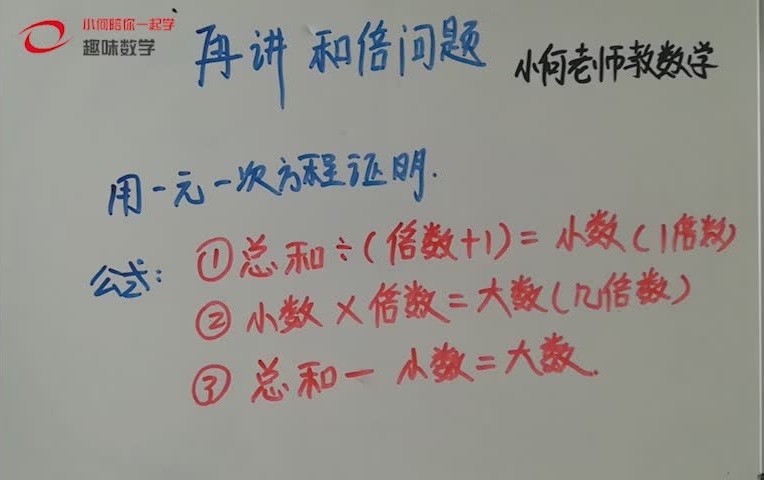 小何陪你一起学
趣味数学
再讲 和倍问题
小何老师教数学
用一元一次方程证明.
公式: ①总和÷(倍数+1)=小数(1倍数)
②小数×倍数=大数(几倍数)
③总和-小数=大数.